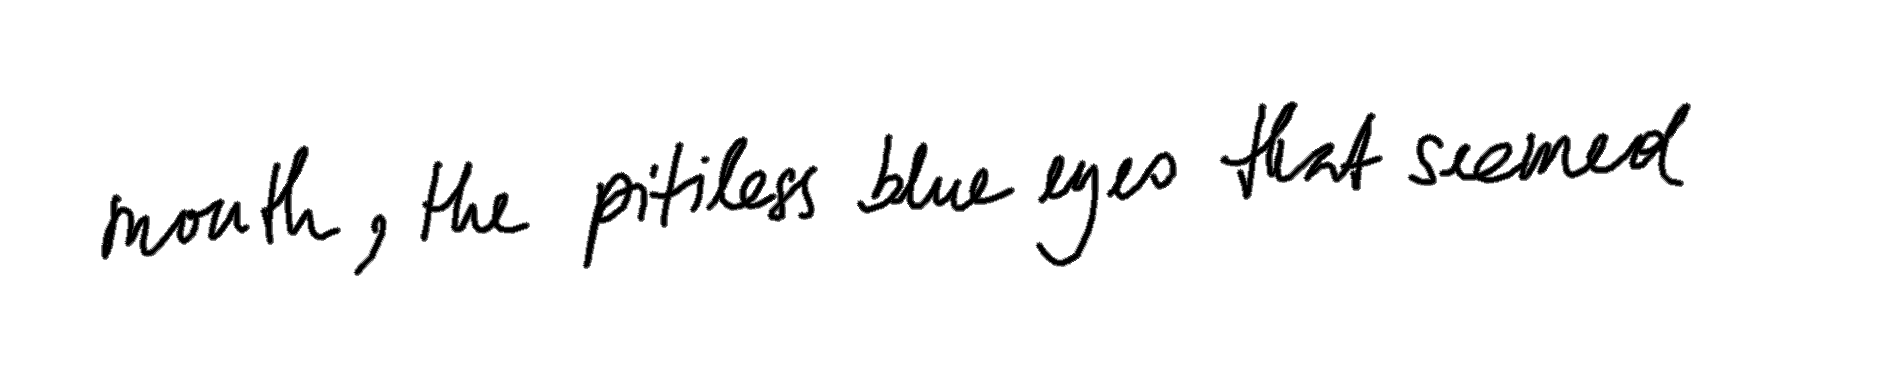 mouth, the pitiless blue eyes that seemed